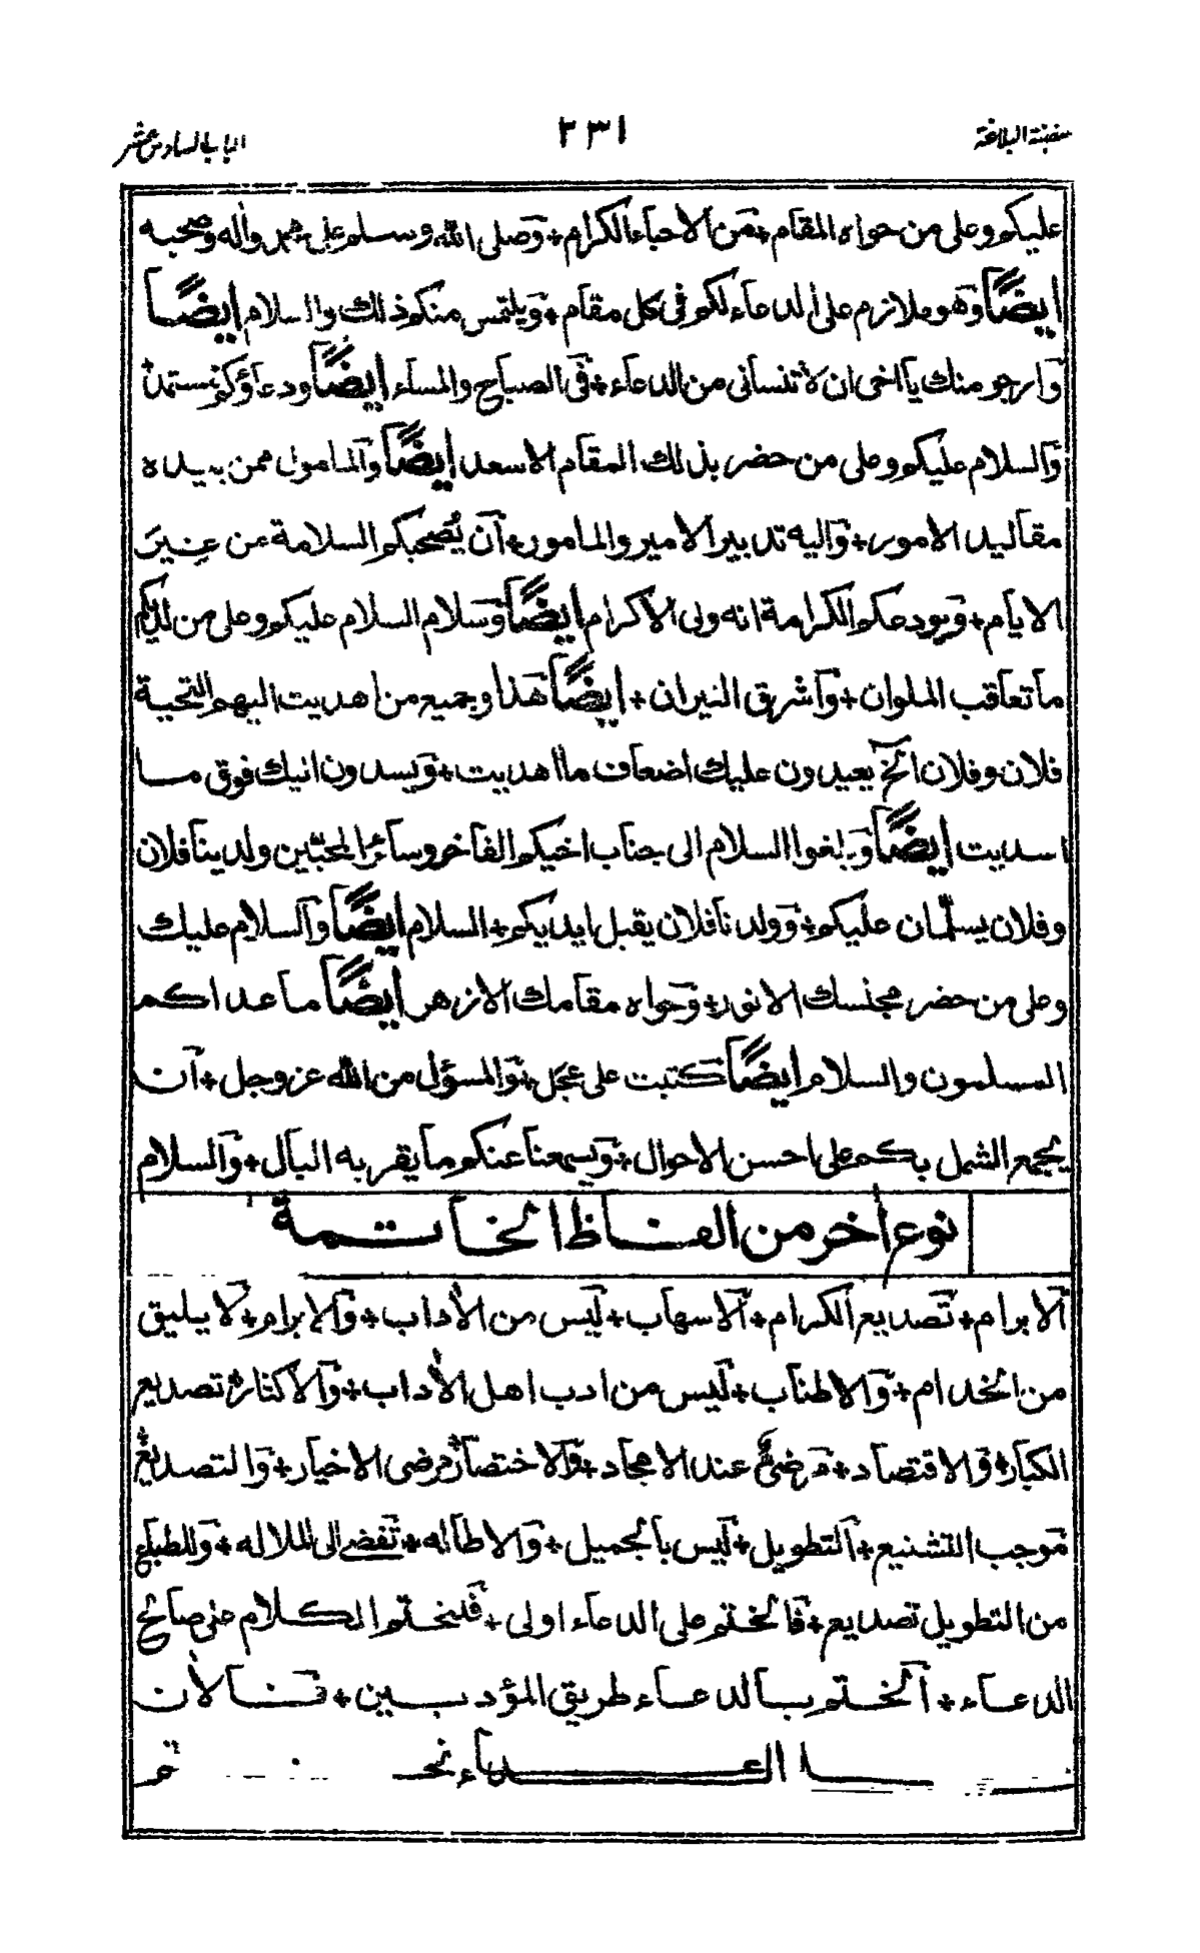 سفينة البلاغة ٢٣١ الباب السادس عشر
عليكم وعلى من حواه المقام + من الاحباء الكرام + وصلى الله وسلم على محمد واله وصحبه
ايضًا وهو ملازم على الدعاء لكم فى كل مقام + ويلتمس منكم ذلك والسلام ايضًا
وارجو منك يا اخى ان لا تنسانى من الدعاء + فى الصباح والمساء ايضًا ودعاؤكم نستمد
والسلام عليكم وعلى من حضر بذلك المقام الاسعد ايضًا والمامول ممن بيده
مقاليد الامور + واليه تدبير الامير والمامور + أن يُصحبكم السلامة عن غِيَرَ
الايام + ويودعكم الكرامة انه ولى الاكرام ايضًا وسلام السلام عليكم وعلى من لديكم
ما تعاقب الملوان + وآشرق النيران + ايضًا هذا وجميع من اهديت اليهم التحية
فلان وفلان الخ يعيدون عليك اضعاف ما اهديت + ويسدون اليك فوق ما
اسديت ايضًا وبلغوا السلام الى جناب اخيكم الفاخر وسائر المحبّين ولدينا فلان
وفلان يسلّمان عليكم + وولدنا فلان يقبل ايديكم + السلام ايضًا والسلام عليك
وعلى من حضر مجلسك الانور + وحواه مقامك الازهر ايضًا ما عداكم
المسلمون والسلام ايضًا كتبت على عجل + والمسؤل من الله عز وجل + أن
يجمع الشمل بكم على احسن الاحوال + ويسمعنا عنكم ما يقر به البال + والسلام
نوع اخر من الفاظ الخاتمة
آلابرام + تصديع الكرام + آلاسهاب + ليس من الأداب + والابرام + لا يليق
من الخدام + والاطناب + ليس من ادب اهل الأداب + والاكثار + تصديع
الكبار + والاقتصاد + مرضىٌ عند الامجاد + والاختصار مرضى الاخيار + والتصديع
موجب التشنيع + التطويل + ليس بالجميل + والاطاله + تفضى الى الملاله + وللطباع
من التطويل تصديع + فالختم على الدعاء اولى + فلنختم الكلام على صالح
الدعاء + الختم بالدعاء طريق المؤدبين +